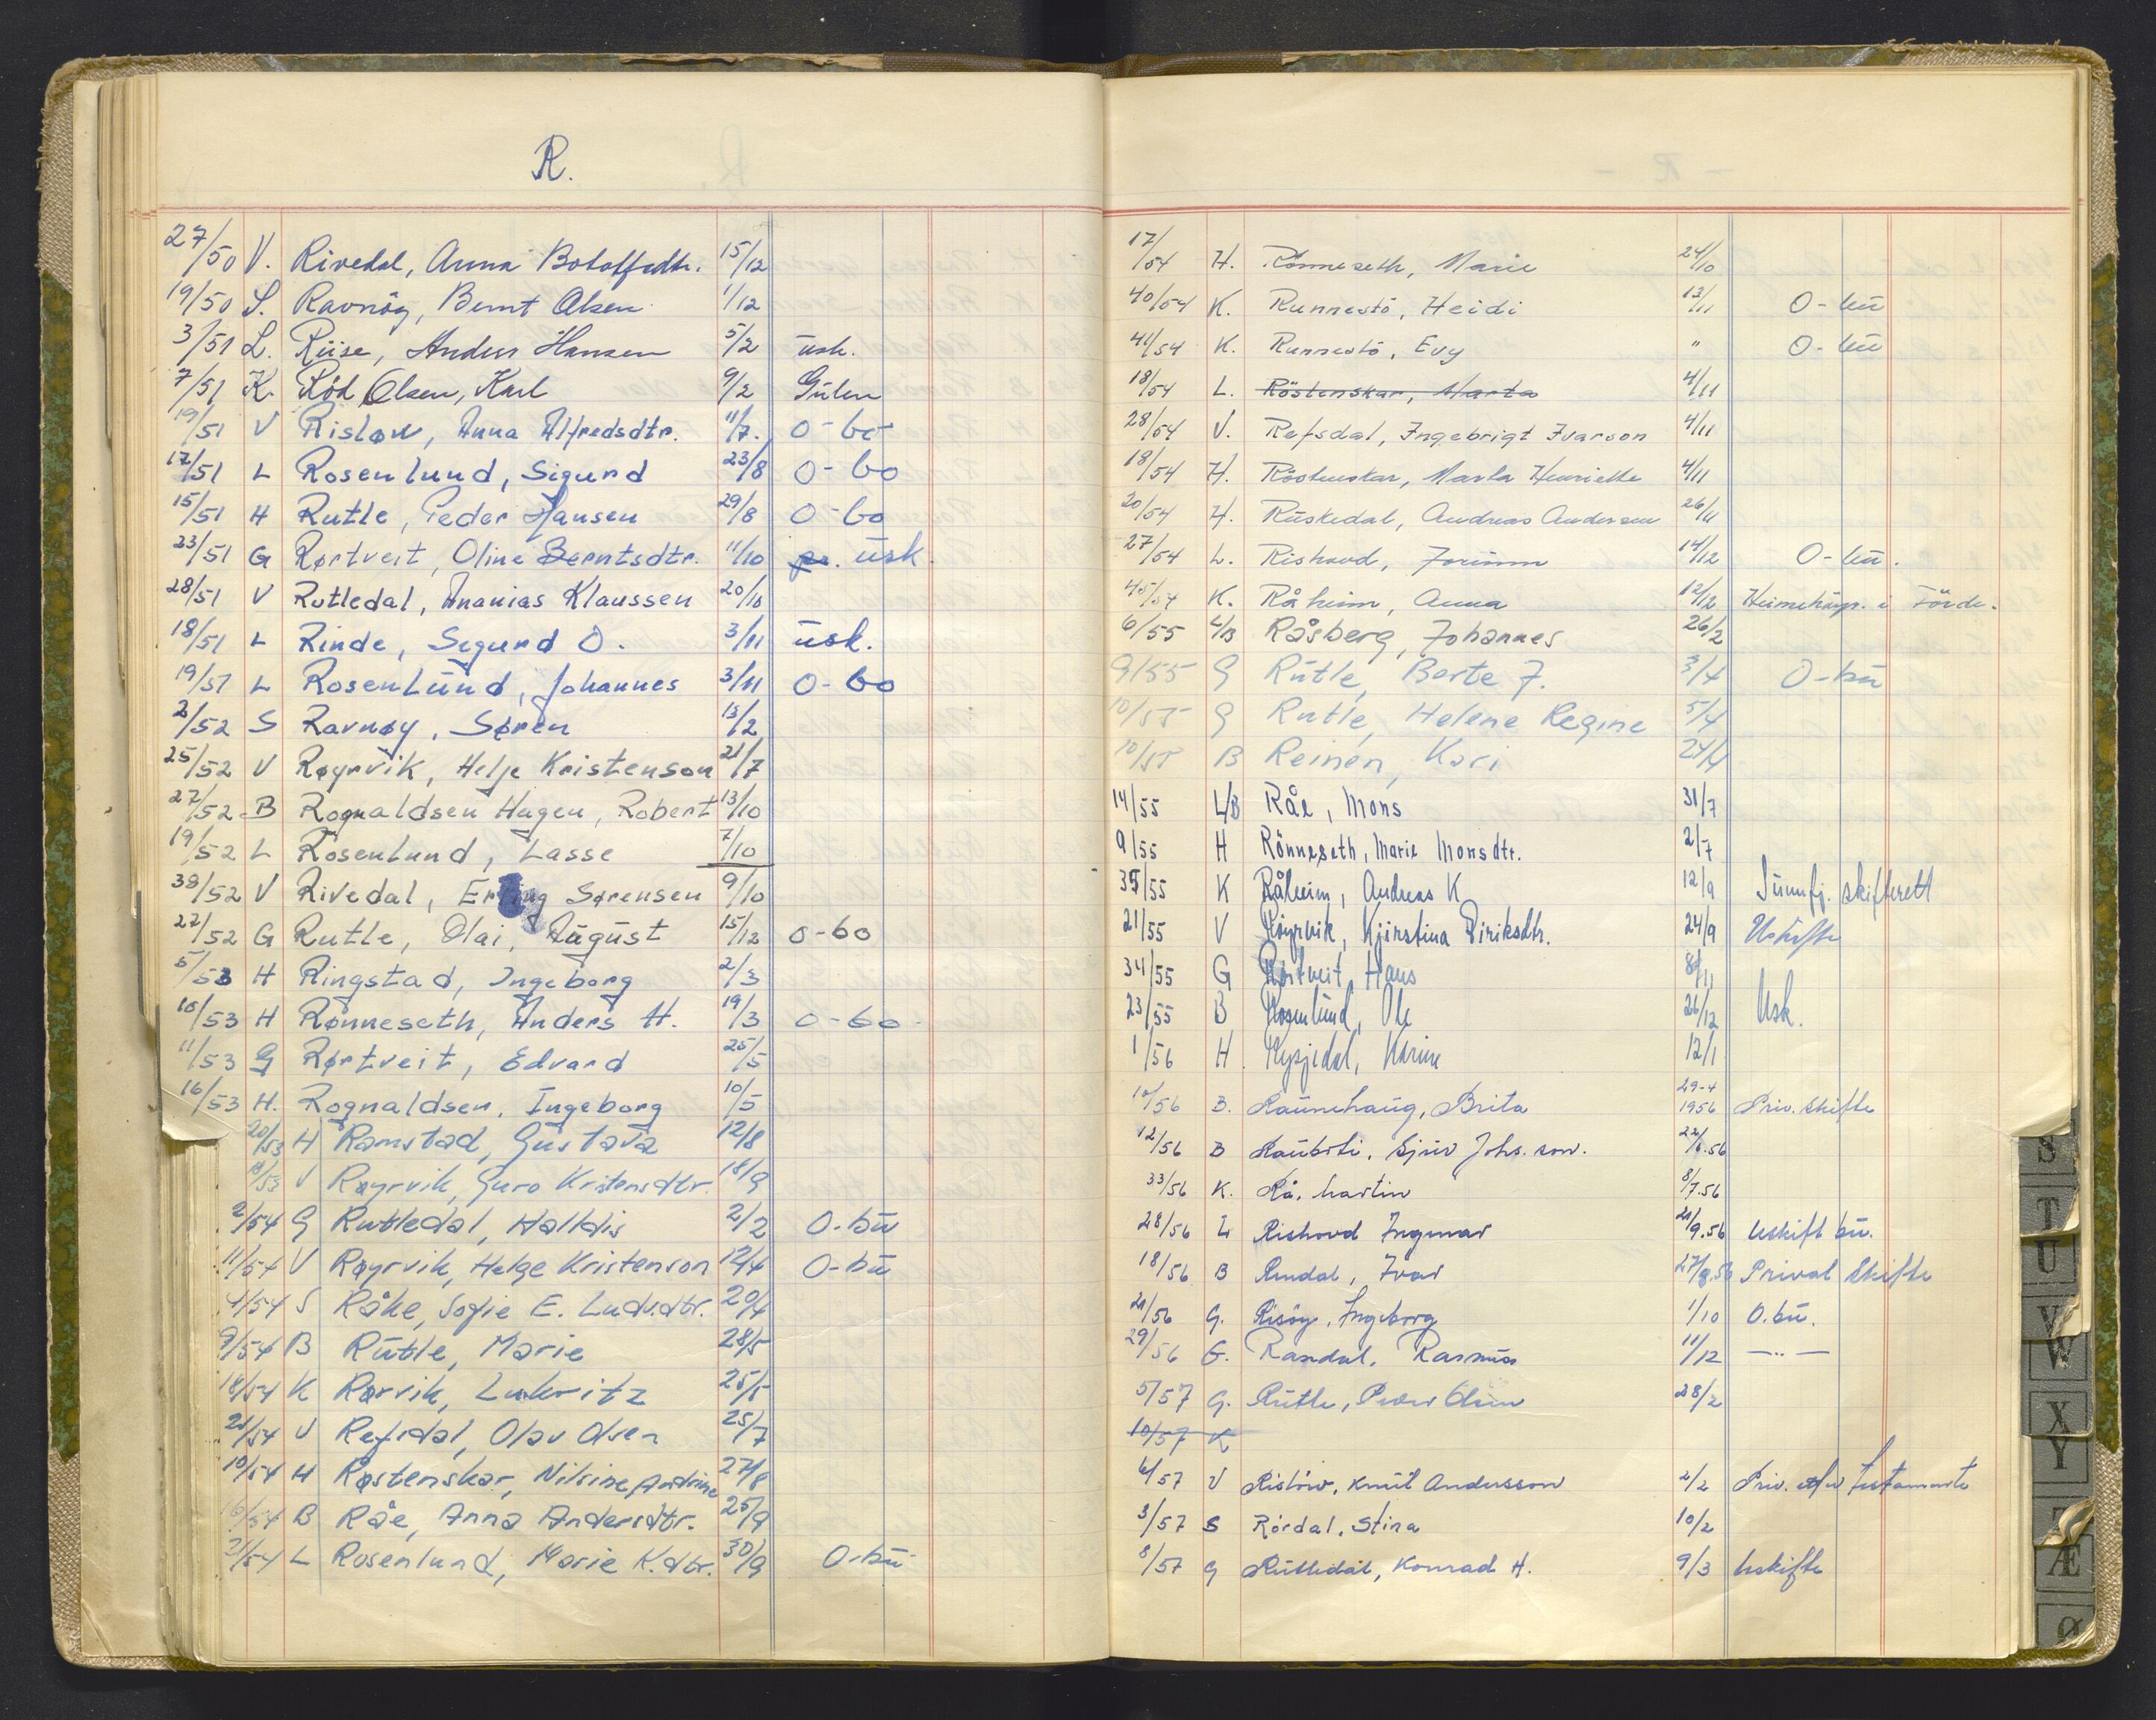 R.
27/50 V. Rivedal, Anna Botolfsdtr. 15/12
19/50 S. Ravnöy, Bernt Olsen 1/12
3/51 L. Riise, Anders Hansen 5/2 usk.
7/51 K. Röd Olsen, Karl 9/2 Gulen
19/51 V Risløw, Anna Alfredsdtr. 11/7. O-bo
17/51 L Rosenlund, Sigurd 23/8 O-bo
15/51 H Rutle, Peder Hansen 29/8 O-bo
23/51 G Rørtveit, Oline Berntsdtr. 11/10 usk.
28/51 V Rutledal, Ananias Klaussen 20/10
18/51 L Rinde, Segurd O. 3/11 usk.
19/51 L Rosenlund, Johannes 3/11 O-bo
2/52 S Ravnøy, Søren 13/2
25/52 V Røyrvik, Helje Kristenson 21/7
27/52 B Rognaldsen Hagen, Robert 13/10
19/52 L Rosenlund, Lasse 7/10
38/52 V Rivedal, Erling Sørensen 9/10
27/52 G Rutle, Olai, August 15/12 O-bo
5/53 H Ringstad, Ingeborg 2/3
10/53 H Rønneseth, Anders H. 19/3 O-bo
11/53 G Rørtveit, Edvard 25/5
16/53 H. Rognaldsen, Ingeborg 10/5
20/53 H Ramstad, Gustava 12/8
18/53 V Røyrvik, Guro Kristensdtr. 18/9
2/54 G Rutledal, Halldis 2/2 O-bu
11/54 V Røyrvik, Helge Kristenson 12/4 O-bu
4/54 S Råke, Sofie E. Ludv.dtr. 20/4
9/54 B Rutle, Marie 28/5
18/54 K Rørvik, Ludvitz 25/5
21/54 V Refsdal, Olav Olsen 25/7
10/54 H Røstenskar, Nilsine Andrine 27/8
16/54 B Råe, Anna Andersdtr. 25/9
21/54 L Rosenlund, Marie K.dtr. 30/9 O-bu
17/54 H. Rönneseth, Marie 24/10
40/54 K. Runnestö, Heidi 13/11 O-bu
41/54 K. Runnestö, Evy " O-bu
18/54 L. Röstenskar, Marta 4/11
28/54 V. Refsdal, Ingebrigt Ivarson 4/11
18/54 H. Röstenskar, Marta Henriette 4/11
20/54 H. Ruskedal, Andreas Andersen 26/11
27/54 L. Rishovd, Jorunn 14/12 O-bu.
45/54 K. Råheim, Anna 12/12 Heimehøyr. i Förde.
6/55 L/B Råsberg, Johannes 26/2
9/55 G Rutle, Berte J. 3/4 O-bu
10/55 G Rutle, Helene Regine 5/4
10/55 B Reinen, Kari 24/4
14/55 L/B Råe, Mons 31/7
9/55 H Rönneseth, Marie Monsdtr. 2/7
35/55 K Råheim, Andreas K 12/9 Sunnfj. skifterett
21/55 V Röyrvik, Kjerstina Diriksdtr. 24/9 Uskifte
34/55 G Rörtveit, Hans 8/11
23/55 B Rosenlund, Ole 26/12 Usk.
1/56 H Rysjedal, Karine 12/1
10/56 B. Raunehaug, Brita 29-4 1956 Priv. skifte
12/56 B Raubøti, Sjur Johs. son. 22/6.56
33/56 K. Rå, Martin 8/7.56
28/56 L Rishovd Ingmar 21/9.56 Uskift bu.
18/56 B Rindal, Ivar 27/9.56 Privat Skifte
21/56 G. Risöy, Ingeborg 1/10 O.bu.
29/56 G. Randal, Rasmus 11/12 —"—
5/57 G. Rutle, Peder Olsen 28/2
10/57 K
6/57 V Rislöw, Knut Andersson 2/2 Priv. etter testamente
3/57 S Rördal, Stina 10/2
8/57 G Rutledal, Konrad H. 9/3 Uskifte
S
T
U
V
W
X
Y
Z
Æ
Ø